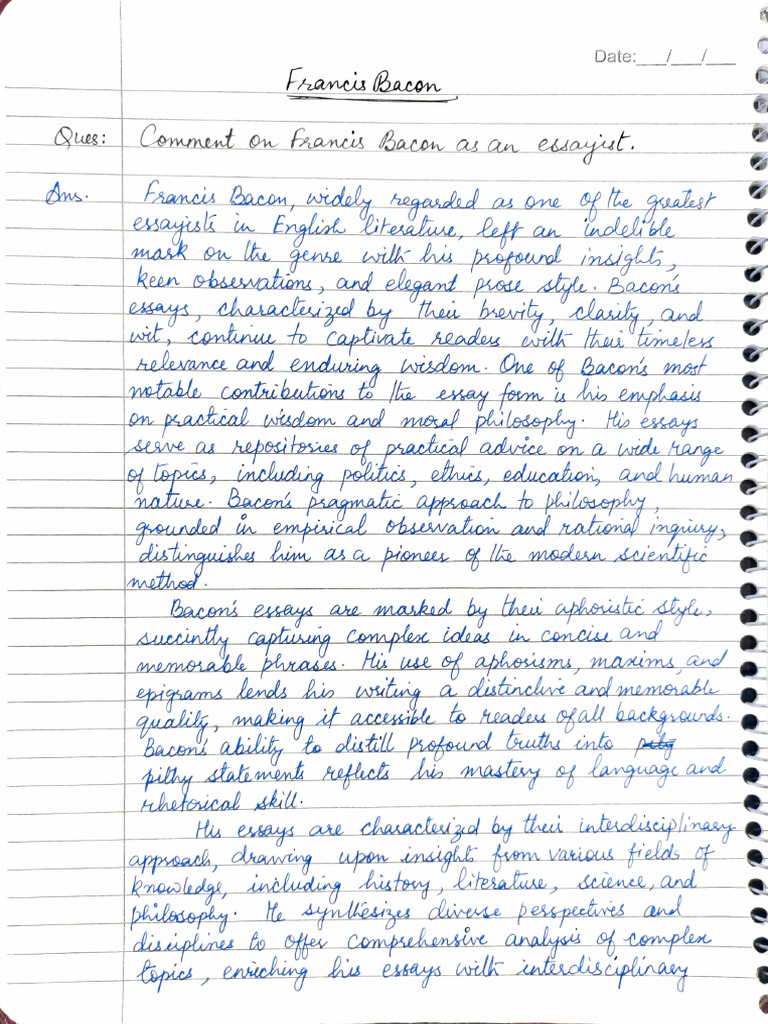 Date:___/___/___
Francis Bacon
Ques: Comment on Francis Bacon as an essayist.
Ans. Francis Bacon, widely regarded as one of the greatest
essayists in English literature, left an indelible
mark on the genre with his profound insights,
keen observations, and elegant prose style. Bacon's
essays, characterized by their brevity, clarity, and
wit, continue to captivate readers with their timeless
relevance and enduring wisdom. One of Bacon's most
notable contributions to the essay form is his emphasis
on practical wisdom and moral philosophy. His essays
serve as repositories of practical advice on a wide range
of topics, including politics, ethics, education, and human
nature. Bacon's pragmatic approach to philosophy,
grounded in empirical observation and rational inquiry,
distinguishes him as a pioneer of the modern scientific
method.
Bacon's essays are marked by their aphoristic style,
succintly capturing complex ideas in concise and
memorable phrases. His use of aphorisms, maxims, and
epigrams lends his writing a distinctive and memorable
quality, making it accessible to readers of all backgrounds.
Bacon's ability to distill profound truths into
pithy statements reflects his mastery of language and
rhetorical skill.
His essays are characterized by their interdisciplinary
approach, drawing upon insights from various fields of
knowledge, including history, literature, science, and
philosophy. He synthesizes diverse perspectives and
disciplines to offer comprehensive analysis of complex
topics, enriching his essays with interdisciplinary